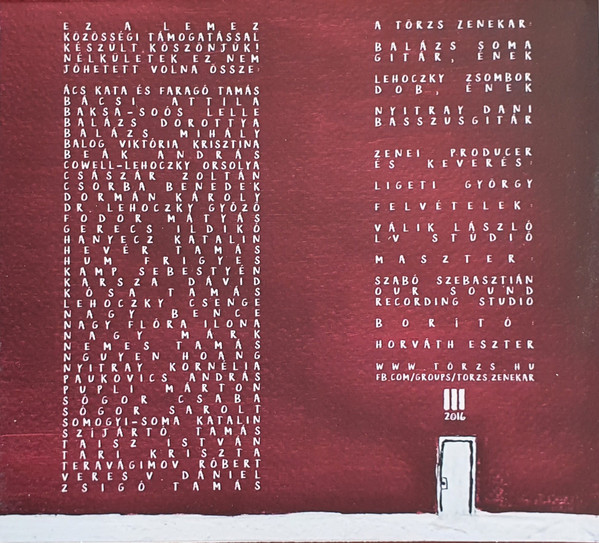 EZ A LEMEZ
KÖZÖSSÉGI TÁMOGATÁSSAL
KÉSZÜLT. KÖSZÖNJÜK!
NÉLKÜLETEK EZ NEM
JÖHETETT VOLNA ÖSSZE:
ÁCS KATA ÉS FARAGÓ TAMÁS
BÁCSI ATTILA
BAKSA-SOÓS LELLE
BALÁZS DOROTTYA
BALÁZS MIHÁLY
BALOG VIKTÓRIA KRISZTINA
BEÁK ANDRÁS
COWELL-LEHOCZKY ORSOLYA
CSÁSZÁR ZOLTÁN
CSORBA BENEDEK
DORMÁN KÁROLY
DR. LEHOCZKY GYŐZŐ
FODOR MÁTYÁS
GERECS ILDIKÓ
HANYECZ KATALIN
HEVÉR TAMÁS
HUM FRIGYES
KAMP SEBESTYÉN
KARSZA DÁVID
KÓSA TAMÁS
LEHOCZKY CSENGE
NAGY BENCE
NAGY FLÓRA ILONA
NAGY MÁRK
NEMES TAMÁS
NGUYEN HOANG
NYITRAY KORNÉLIA
PAUKOVICS ANDRÁS
PUPLI MÁRTON
SÓGOR CSABA
SÓGOR SAROLT
SOMOGYI-SOMA KATALIN
SZIJÁRTÓ TAMÁS
TAISZ ISTVÁN
TARI KRISZTA
TERAVÁGIMOV RÓBERT
VERES V. DÁNIEL
ZSIGÓ TAMÁS
A TÖRZS ZENEKAR:
BALÁZS SOMA
GITÁR, ÉNEK
LEHOCZKY ZSOMBOR
DOB, ÉNEK
NYITRAY DANI
BASSZUSGITÁR
ZENEI PRODUCER
ÉS KEVERÉS:
LIGETI GYÖRGY
FELVÉTELEK:
VÁLIK LÁSZLÓ
LV STÚDIÓ
MASZTER:
SZABÓ SZEBASZTIÁN
OUR SOUND
RECORDING STUDIO
BORÍTÓ:
HORVÁTH ESZTER
WWW.TÖRZS.HU
FB.COM/GROUPS/TORZS.ZENEKAR
2016